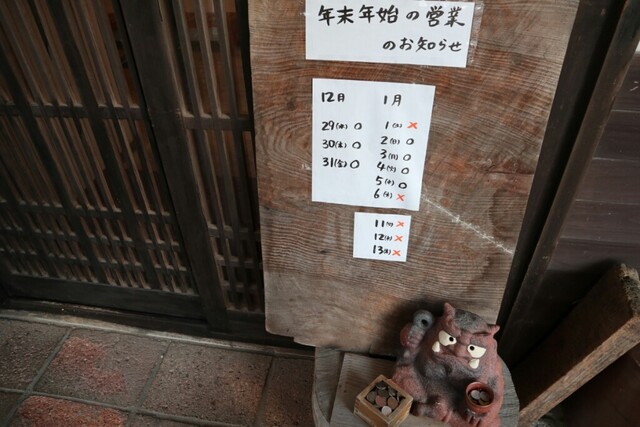 年末年始の営業
のお知らせ
12月
29(水)○
30(木)○
31(金)○
1月
1(土)×
2(日)○
3(月)○
4(火)○
5(水)○
6(木)×
11(火)×
12(水)×
13(木)×